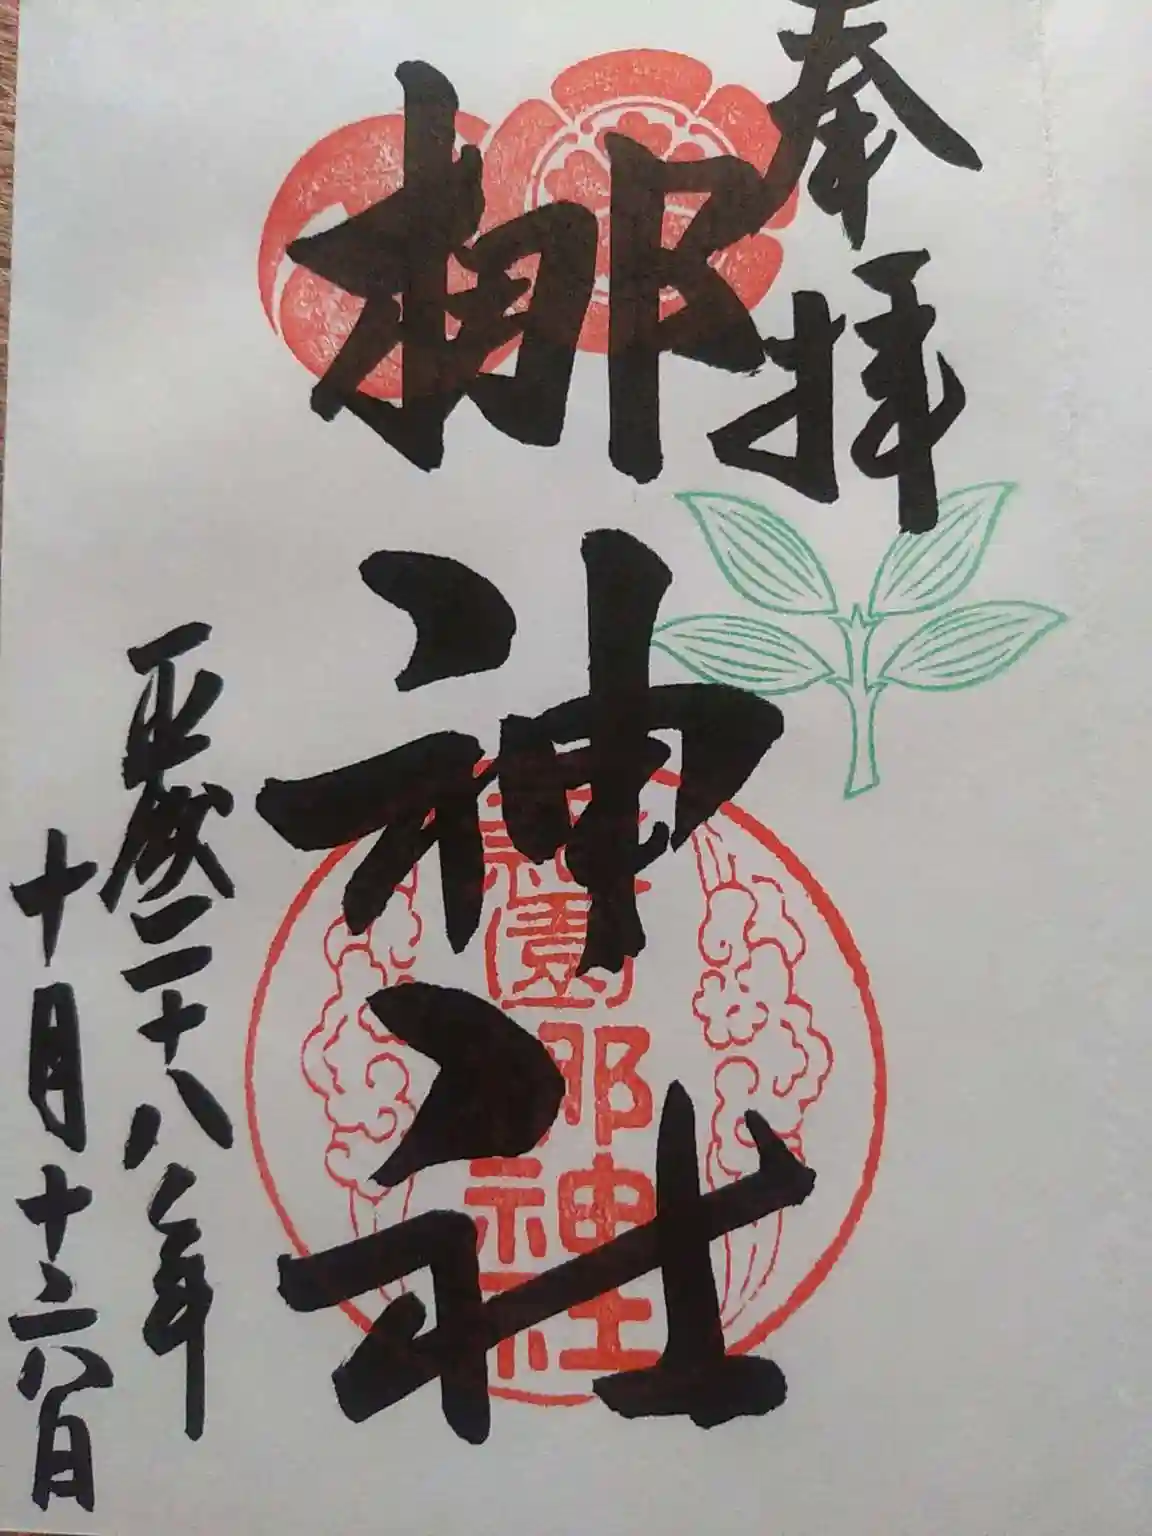 奉拝
梛神社
平成二十八年
十月十六日
元祇園梛神社